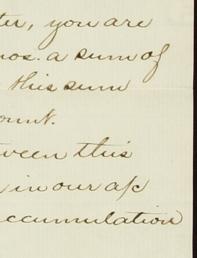 ter, you are
nos. a sum of
this sum
ount.
ween this
in our a/c
ccumulation